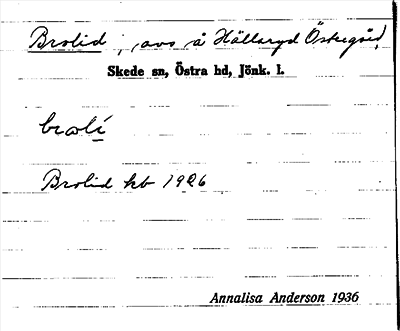 Brolid, avs å Hällaryd Östergård,
Skede sn, Östra hd, Jönk. l.
brolí
Brolid kb 1926
Annalisa Anderson 1936